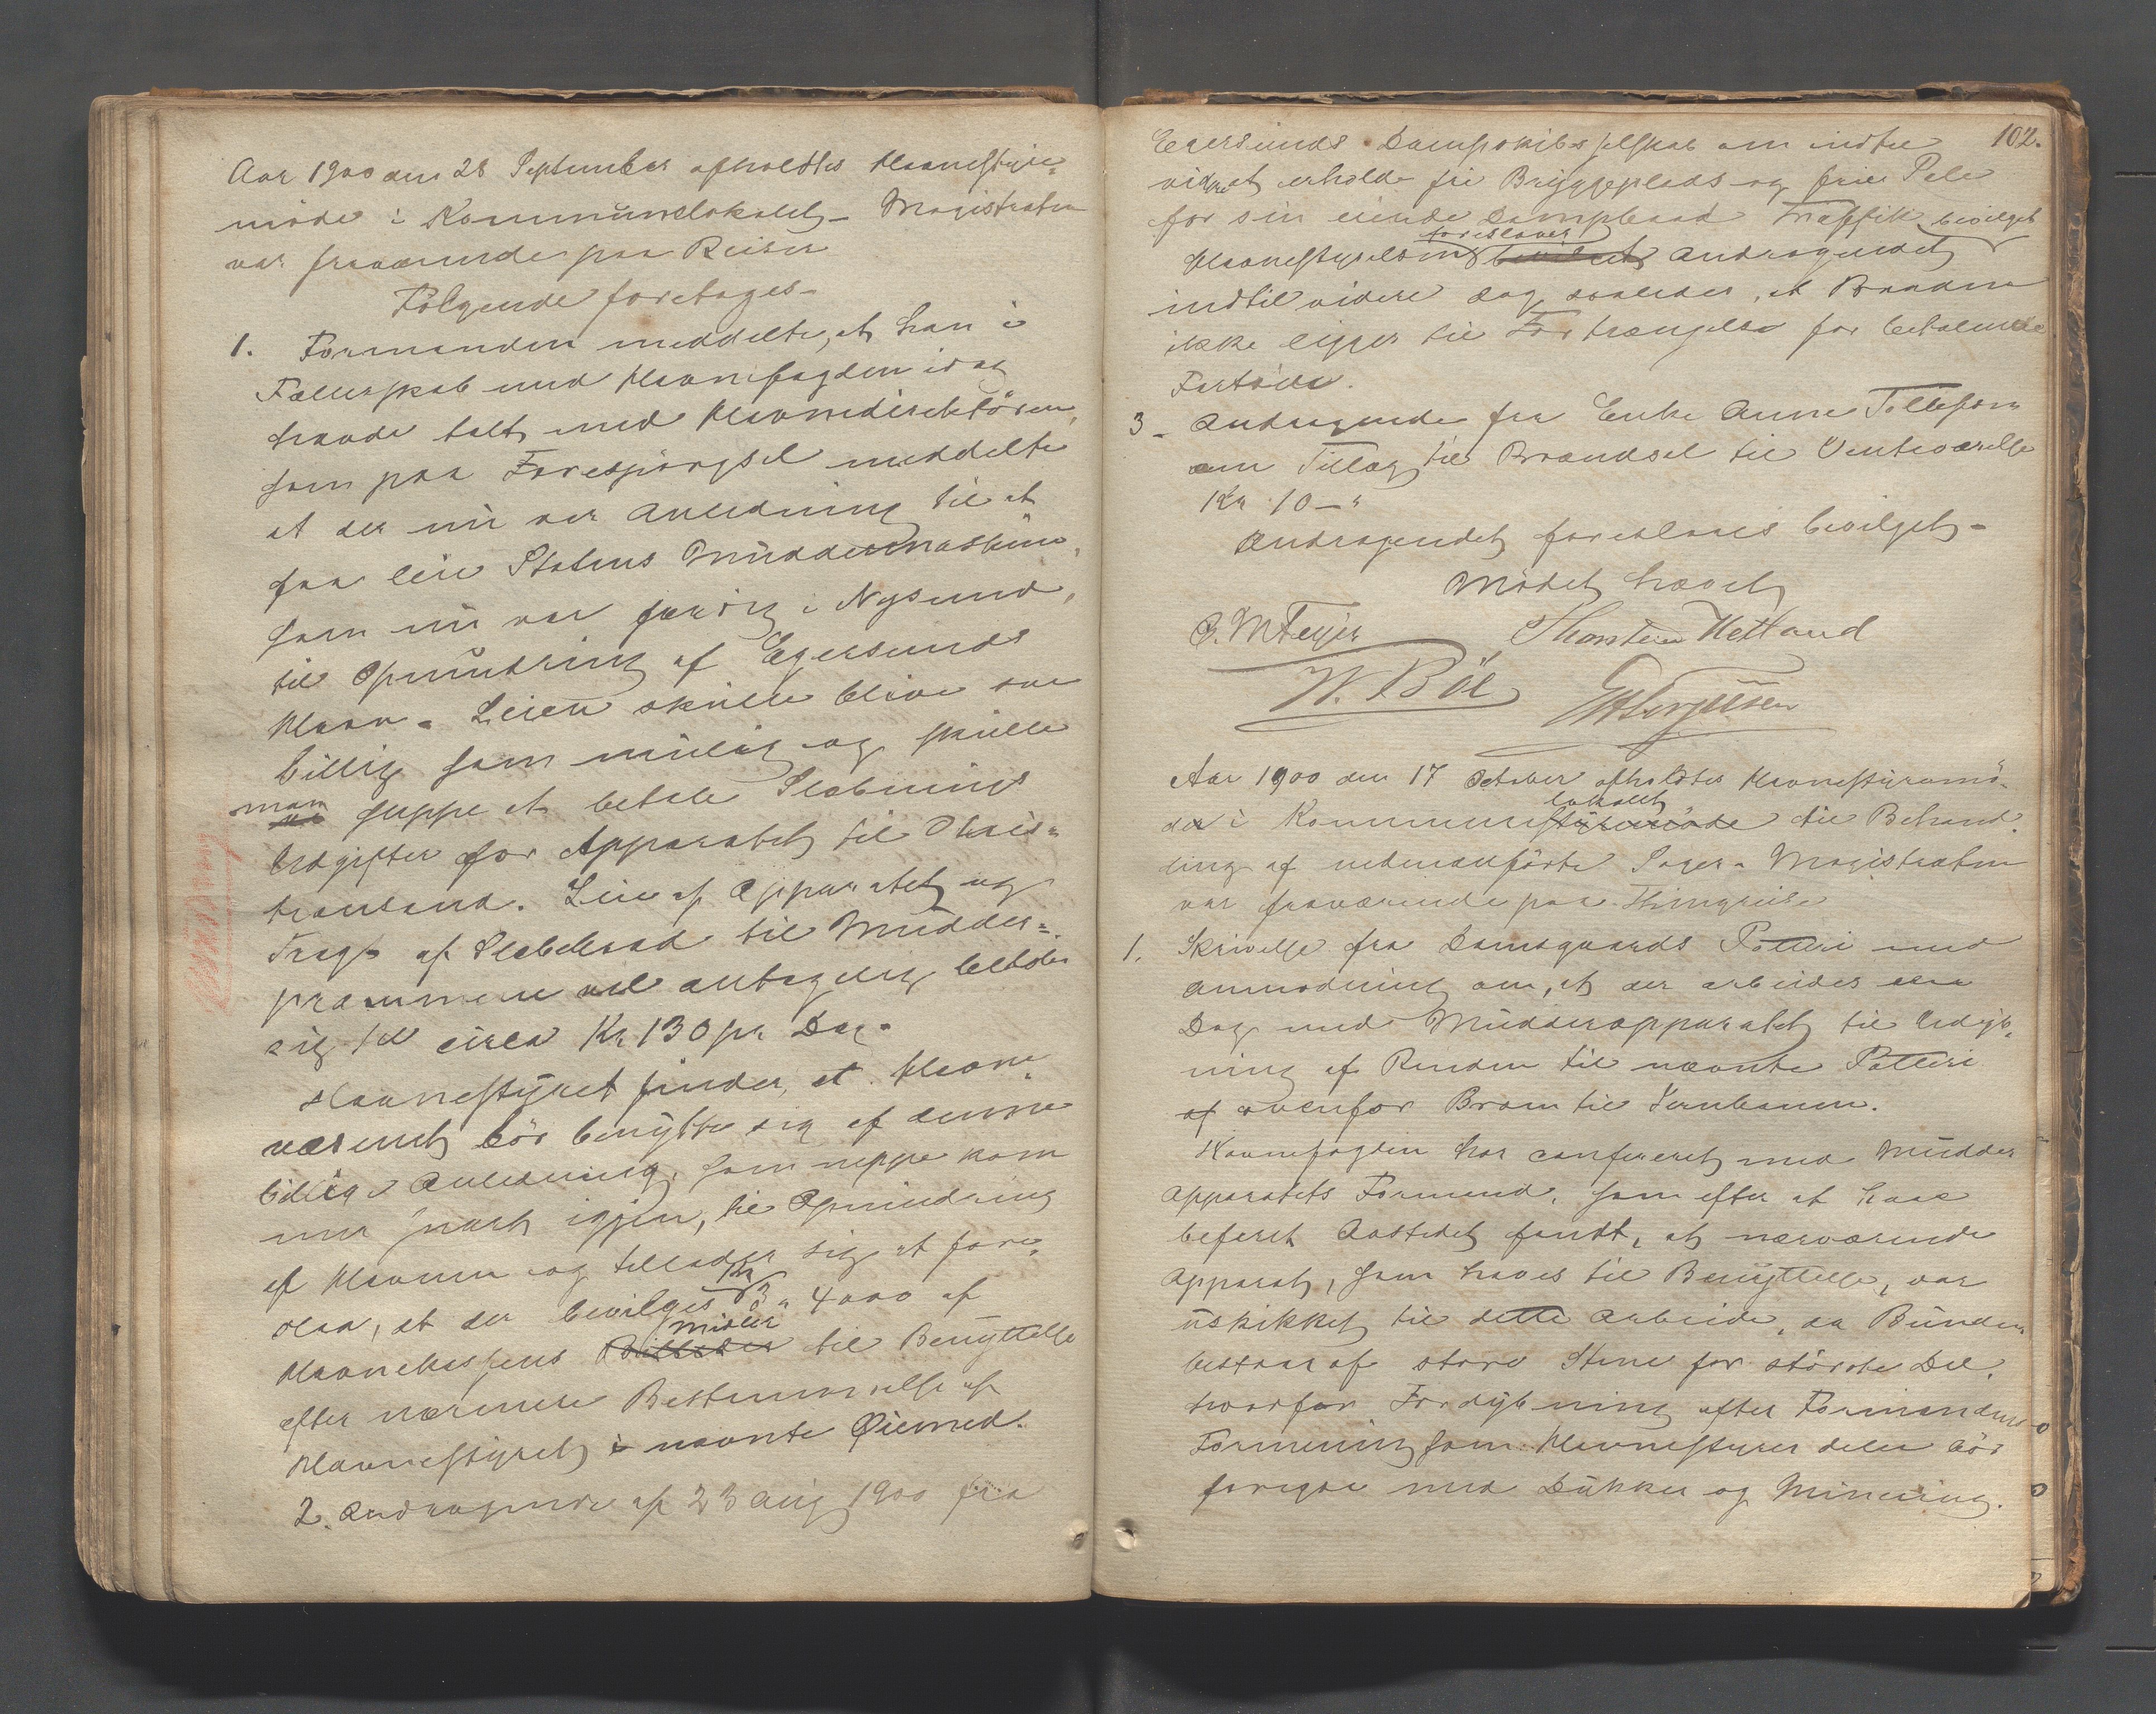 Aar 1900 den 28 September afholdtes Havnestyre-
møde i Kommunelokalet – Magistraten
var fraværende paa Reiser
Følgende foretoges –
1. Formanden meddelte, at han i
Fællesskab med Havnefogden idag
havde talt med Havnedirektøren,
som paa Forespørgsel meddelte
at der nu var Anledning til at
faa leie Statens Muddermaskine,
som nu var færdig i Nysund,
til Opmudring af Egersunds
Havn – Leien skulde blive saa
billig som mulig og skulde
man
slippe at betale Slæbnings
Udgifter for Apparatet til Chris-
tiansand. Leie af Apparatet og
Fragt af Slæbebaad til Mudder-
prammene vil antagelig beløbe
sig til circa Kr 130 pr Dag –
Havnestyret finder, at Havne-
væsenet bør benytte sig af denne
billige Anledning, som neppe kom
mer snart igjen, til Opmudring
af Havnen og tillader sig at fore-
slaa, at der bevilges Kr 4000 af
midler
Havnekassens til Benyttelse
efter nærmere Bestemmelse af
Havnestyret i nævnte Øiemed.
2. Andragende af 23 Aug 1900 fra
102.
Egersunds Dampskibsselskab om indtil
videre at erholde fri Bryggeplads og frie Pele
for sin eiende Dampbaad Trafik bevilget
foreslaaes
Havnestyrelsen bevilget Andragendet
indtil videre dog saaledes, at Baaden
ikke ligger til Fortrængelse for betalende
Fartøier.
3 – Andragende fra Enke Anne Tollefsen
om Tillæg til Brændsel til Venteværelse
Kr 10 – "
Andragendet foreslaaes bevilget –
Mødet hævet
C. M Feyer Thorstein Hetland
W. Böe
Aar 1900 den 17 October afholdtes Havnestyremø-
lokalet
de i Kommunestyremøde til Behand-
ling af nedenanførte Sager – Magistraten
var fraværende paa Thingreise
1. Skrivelse fra Damsgaards Potteri med
Anmodning om, at der arbeides een
Dag med Mudderapparatet til Uddyb-
ning af Renden til nævnte Potteri
af ovenfor Broen til Jernbanen.
Havnefogden har confereret med Mudder
apparatets Formand, som efter at have
beferet Aastedet fandt, at nærværende
Apparat, som haves til Benyttelse, var
uskikket til dette Arbeide, da Bunden
bestaar af store Stene for største Del,
hvorfor Fordybning efter Formandens
Formening som Havnestyret deler bør
foregaa med Dykker og Minering.